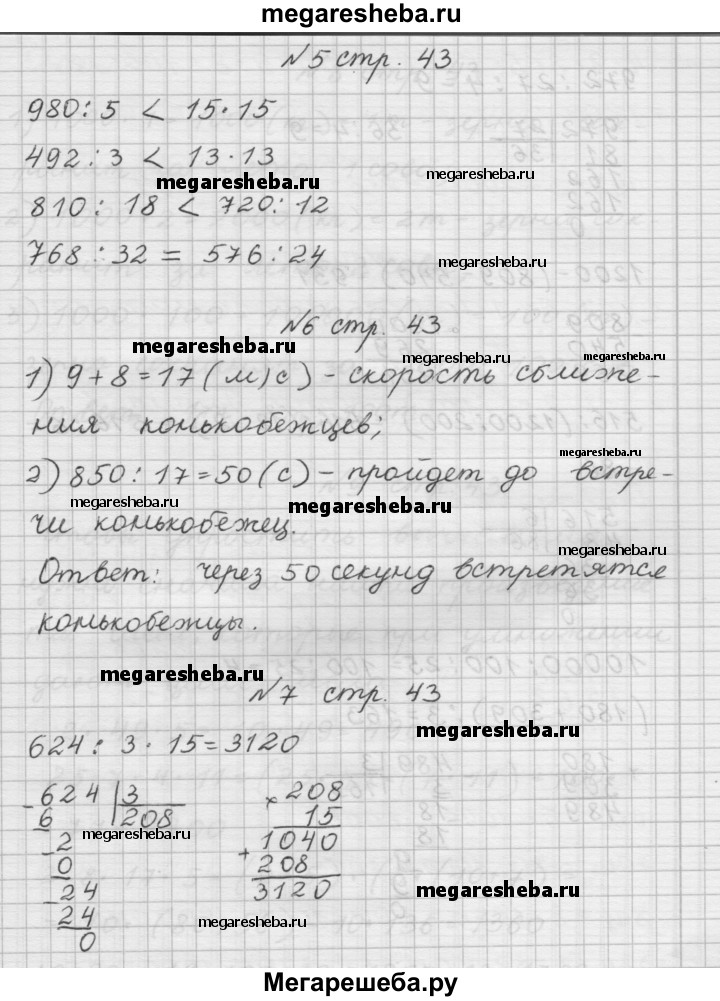 megaresheba.ru
№5 стр. 43
980:5 < 15·15
492:3 < 13·13
megaresheba.ru
megaresheba.ru
810:18 < 720:12
768:32 = 576:24
megaresheba.ru
№6 стр. 43
megaresheba.ru
megaresheba.ru
megaresheba.ru
1) 9+8=17(м/с) - скорость сближе-
ния конькобежцев;
megaresheba.ru
2) 850:17=50(с) - пройдет до встре-
megaresheba.ru
megaresheba.ru
чи конькобежец.
megaresheba.ru
Ответ: через 50 секунд встретятся
конькобежцы.
megaresheba.ru
№7 стр. 43
megaresheba.ru
624:3·15=3120
-624 |3
6 208
-2
0
-24
24
0
×208
15
+1040
208
3120
megaresheba.ru
megaresheba.ru
megaresheba.ru
Мегарешеба.ру